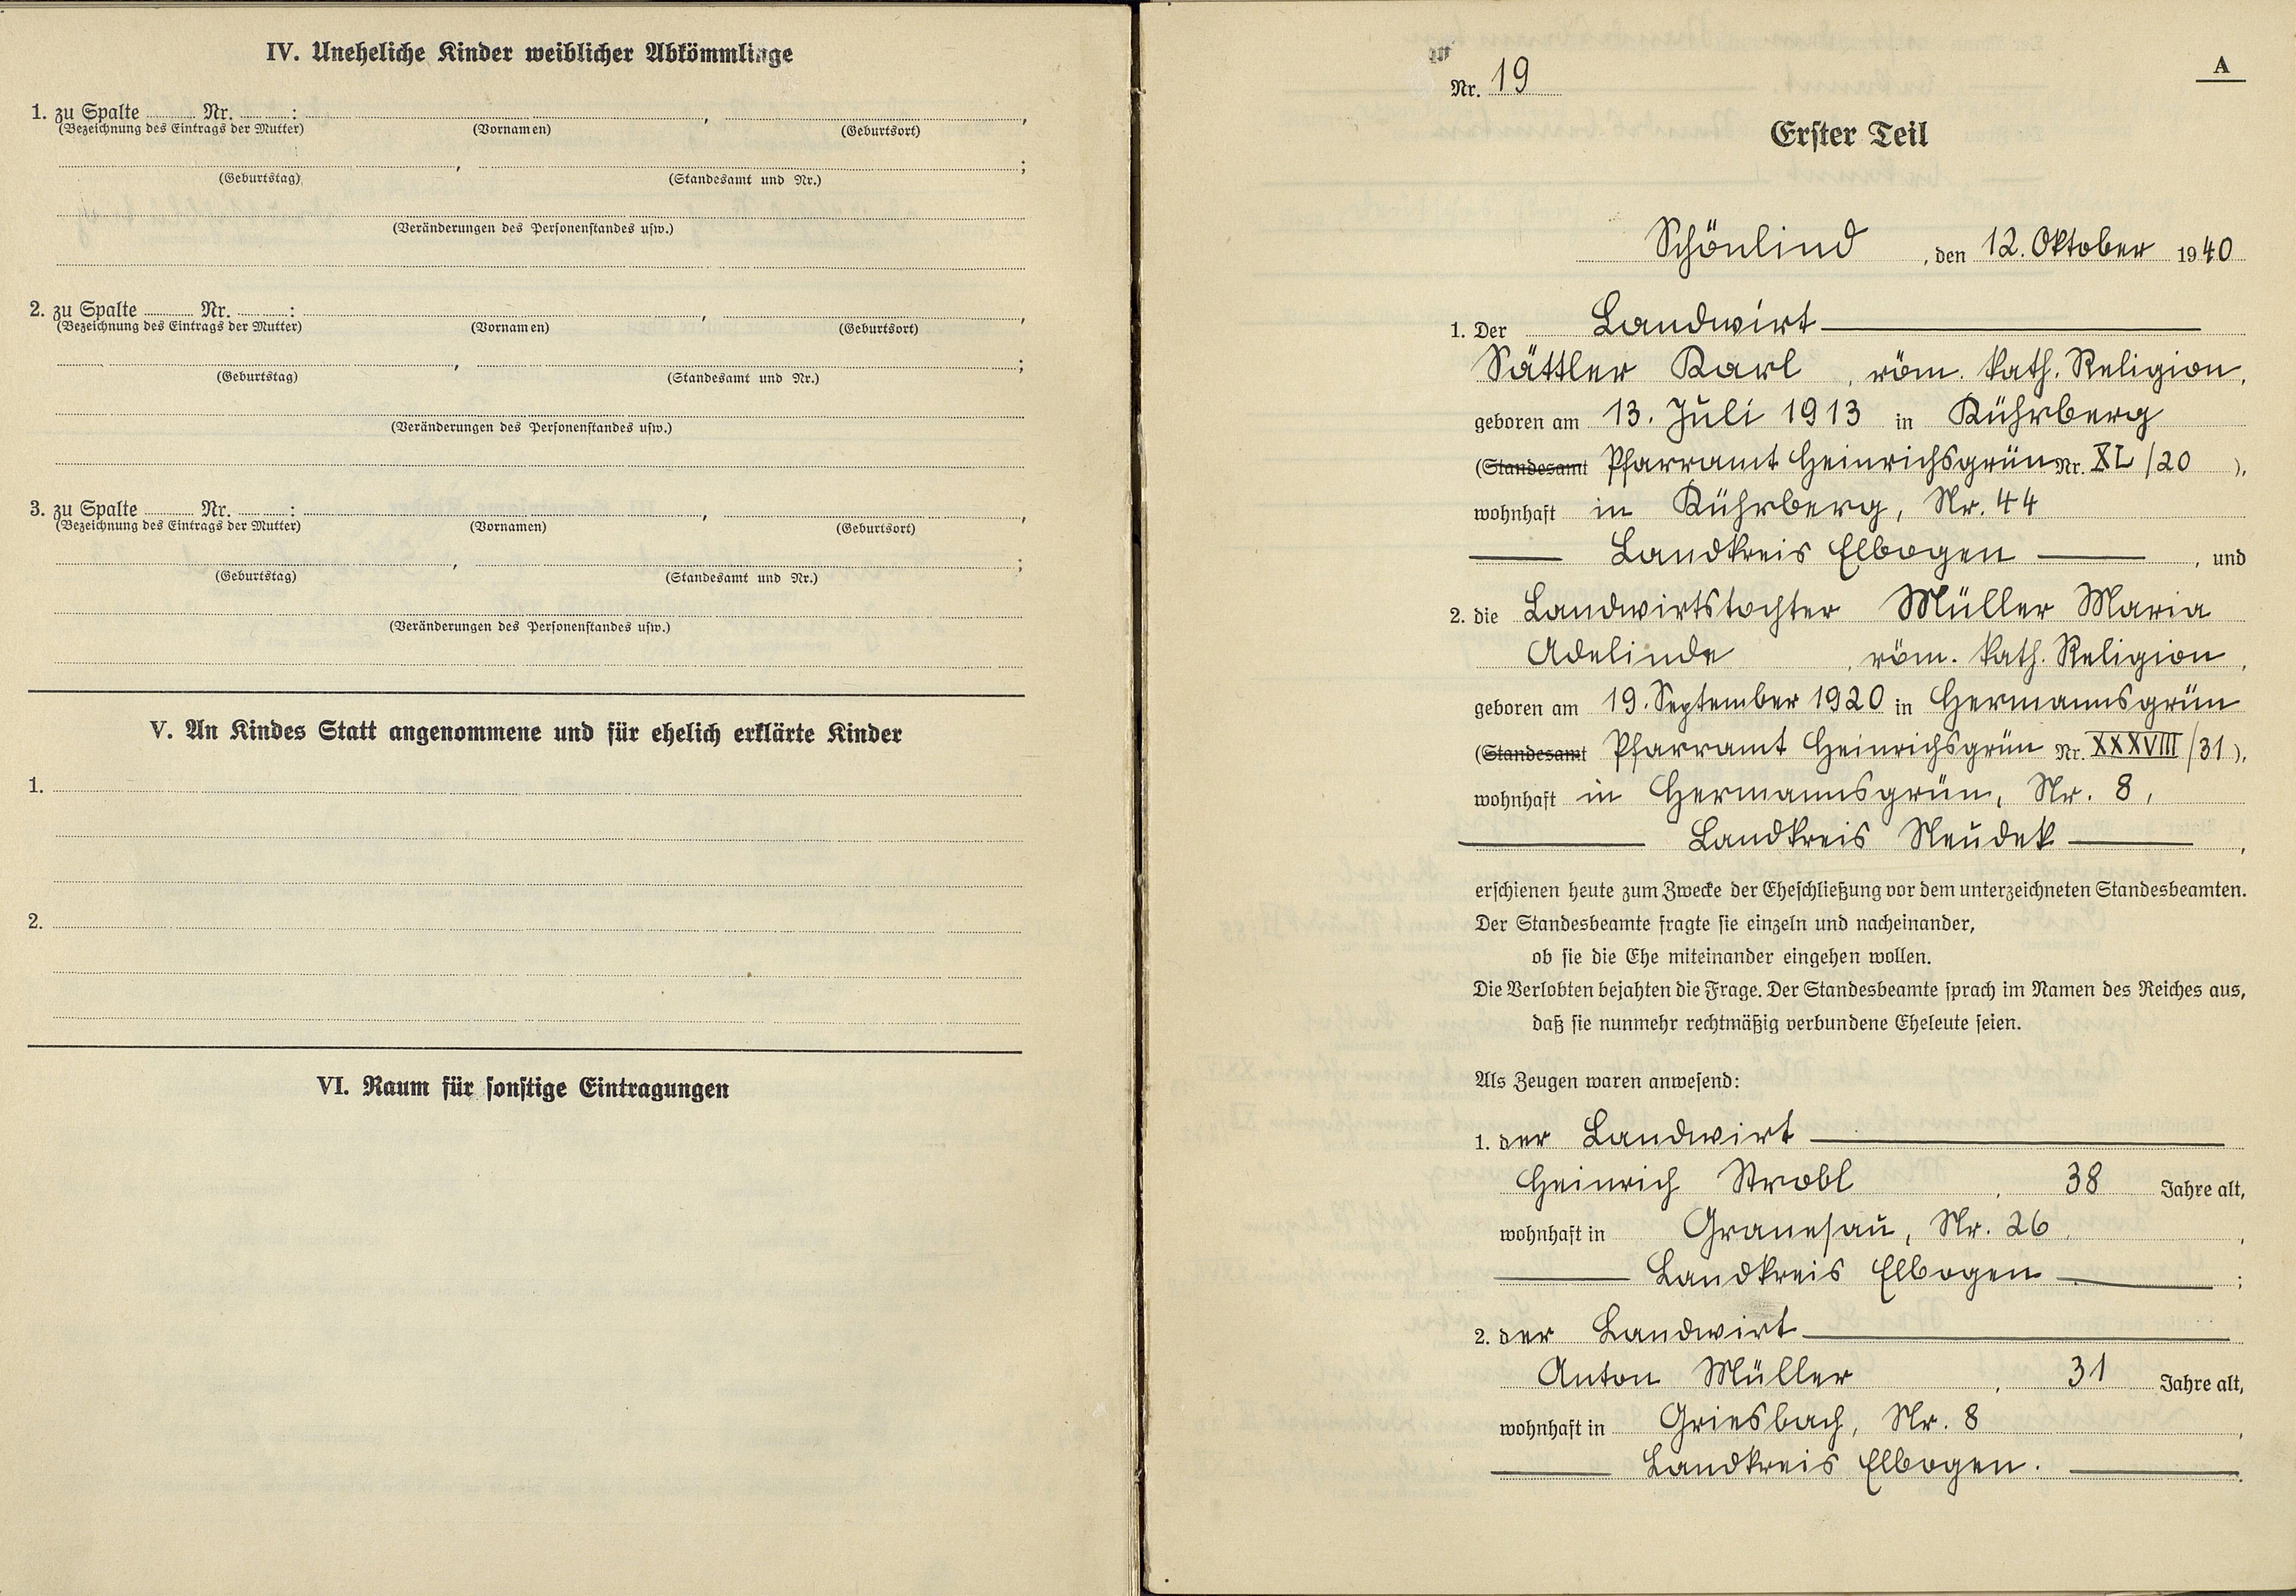 IV. Uneheliche Kinder weiblicher Abkömmlinge
1. zu Spalte Nr. : , ,
(Bezeichnung des Eintrags der Mutter) (Vornamen) (Geburtsort)
, ;
(Geburtstag) (Standesamt und Nr.)
(Veränderungen des Personenstandes usw.)
2. zu Spalte Nr. : , ,
(Bezeichnung des Eintrags der Mutter) (Vornamen) (Geburtsort)
, ;
(Geburtstag) (Standesamt und Nr.)
(Veränderungen des Personenstandes usw.)
3. zu Spalte Nr. : , ,
(Bezeichnung des Eintrags der Mutter) (Vornamen) (Geburtsort)
, ;
(Geburtstag) (Standesamt und Nr.)
(Veränderungen des Personenstandes usw.)
V. An Kindes Statt angenommene und für ehelich erklärte Kinder
1.
2.
VI. Raum für sonstige Eintragungen
A
Nr. 19
Erster Teil
Schönlind, den 12. Oktober 1940
1. Der Landwirt
Sättler Karl, röm. kath. Religion,
geboren am 13. Juli 1913 in Kührberg
(Standesamt Pfarramt Heinrichsgrün Nr. XL/20),
wohnhaft in Kührberg, Nr. 44
Landkreis Elbogen, und
2. die Landwirtstochter Müller Maria
Adelinde, röm. kath. Religion,
geboren am 19. September 1920 in Hermannsgrün
(Standesamt Pfarramt Heinrichsgrün Nr. XXXVIII/31),
wohnhaft in Hermannsgrün, Nr. 8,
Landkreis Neudek,
erschienen heute zum Zwecke der Eheschließung vor dem unterzeichneten Standesbeamten.
Der Standesbeamte fragte sie einzeln und nacheinander,
ob sie die Ehe miteinander eingehen wollen.
Die Verlobten bejahten die Frage. Der Standesbeamte sprach im Namen des Reiches aus,
daß sie nunmehr rechtmäßig verbundene Eheleute seien.
Als Zeugen waren anwesend:
1. der Landwirt
Heinrich Strobl, 38 Jahre alt,
wohnhaft in Granesau, Nr. 26,
Landkreis Elbogen;
2. der Landwirt
Anton Müller, 31 Jahre alt,
wohnhaft in Griesbach, Nr. 8,
Landkreis Elbogen.